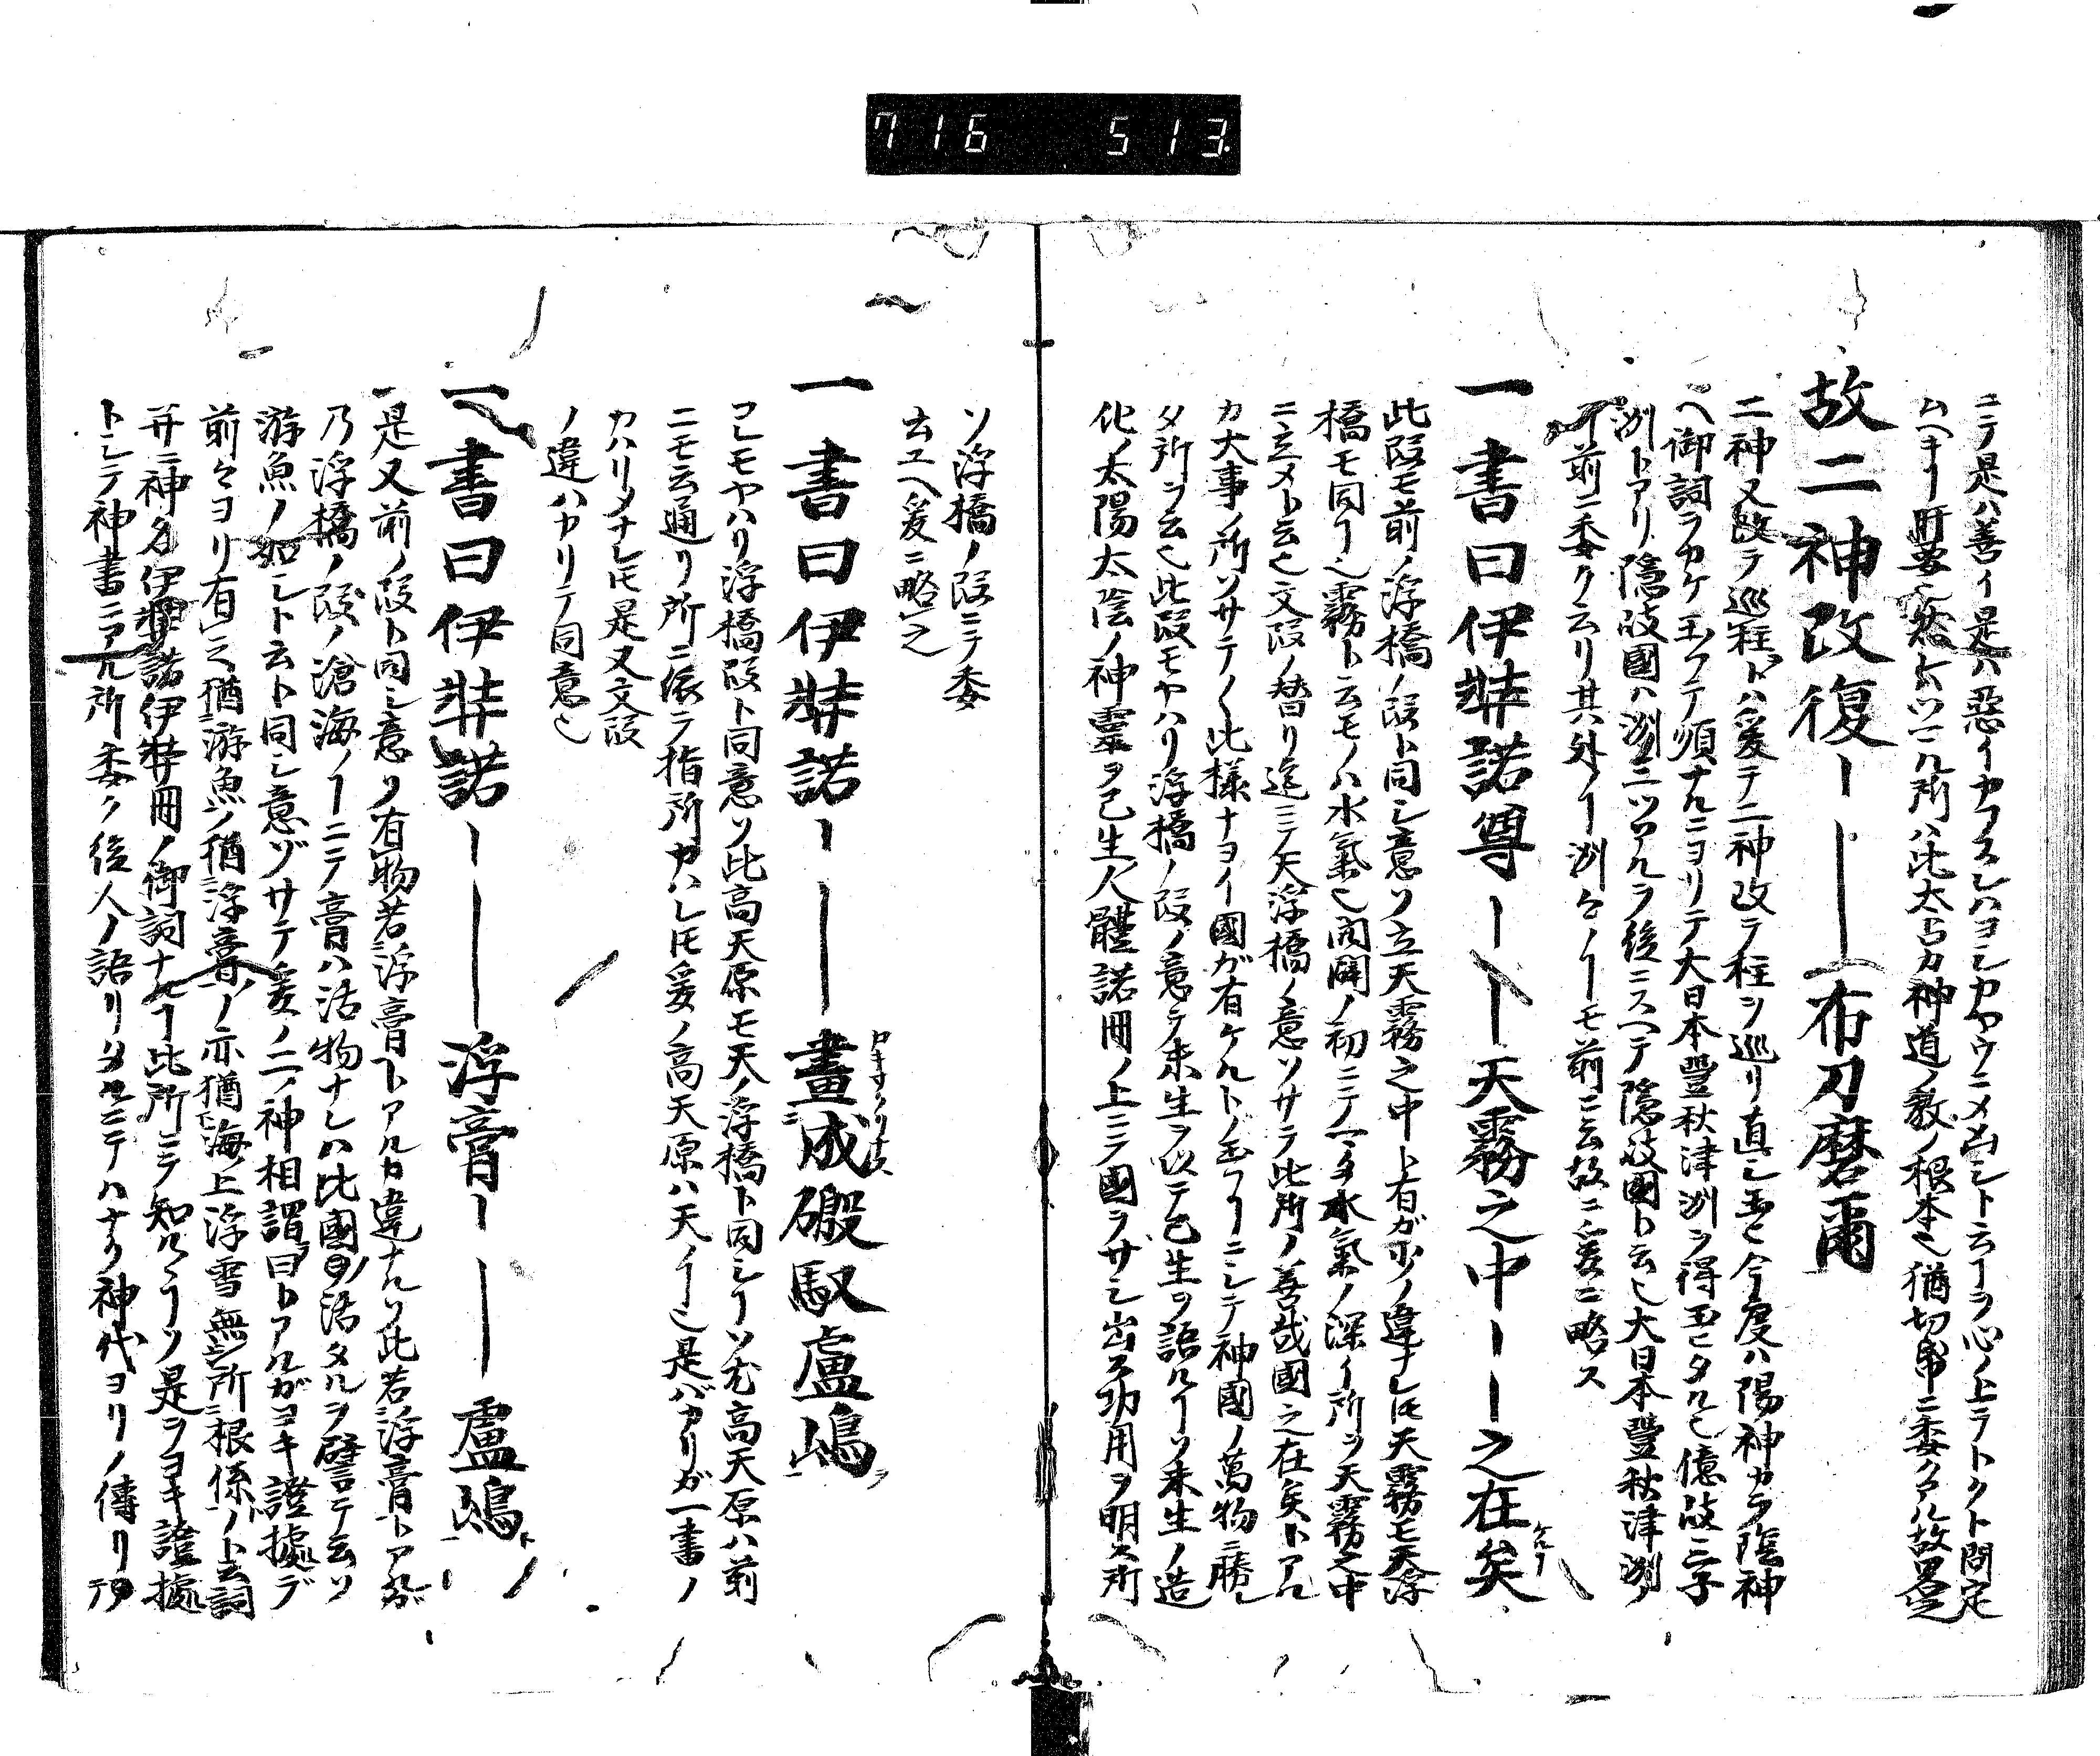 716 513
ニテ是ハ善イ是ハ惡イヤフスレハヨシカヤウニメ出シト云ヿヲ心ノ上ラトクト問定
ムヘキヿ肝要也然トハ云ル所ハ此太占カ神道ノ教ノ根本也猶切帋ニ委クアル故畧之
故二神改復ー ー 布刀磨爾
二神又改テ巡柱トハ爰テ二神改テ柱ヲ巡リ直シ玉ヒ今度ハ陽神カラ陰神
ヘ御詞ヲカケ玉フテ順ナルニヨリテ大日本豐秋津洲ヲ得玉ヒタル也億岐三子
洲トアリ隠岐國ハ洲三ツアルヲ後ニスヘテ隠岐國ト云也大日本豐秋津洲ノ
ヿ前ニ委ク云リ其外ノヿ洲々ノヿモ前ニ云故ニ爰ニ略ス
一書曰伊弉諾尊ー ー 天霧之中ー ー之在矣
此段モ前ノ浮橋ノ段ト同シ意ソ立天霧之中ト有ガ少ノ違ナレ𪜈天霧モ天浮
橋モ同ヿ也霧ト云モノハ水氣也開闢ノ初ニテ水氣ノ深イ所ヲ天霧之中
ニ立メト云也文段ノ替リ迄ニテ天浮橋ノ意ソサテ此所ノ善哉國之在矣トアル
カ大事ノ所ソサテ〳〵此様ナヨイ國ガ有ケルトノ玉フヿニシテ神國ノ萬物ニ勝レ
タ所ヲ云也此段モヤハリ浮橋ノ段ノ意テ未生ヲ以テ已生ヲ語ルヿソ未生ノ造
化ノ太陽太陰ノ神靈ヲ已生人體諾冊ノ上ニテ國ヲザシ出ス功用ヲ明ス所
ソ浮橋ノ段ニテ委
云ユヘ爰ニ略之
一書曰伊弉諾ー ー 畫成磤馭盧嶋
コレモヤハリ浮橋段ト同意ソ此高天原モ天ノ浮橋ト同シヿソ尤高天原ハ前
ニモ云通リ所ニ依テ指所カハレ𪜈爰ノ高天原ハ天ノヿ也是バカリガ一書ノ
カハリメナレ𪜈是又文段
ノ違ハカリテ同意也
一書曰伊弉諾ー ー 浮膏ー ー 盧嶋
是又前ノ段ト同シ意ソ有物若浮膏トアルカ違ナルソ此若浮膏トアルガ
乃浮橋ノ段ノ滄海ノヿニテ膏ハ活物ナレハ此國ノ活タルヲ譬テ云ソ
游魚ノ如シト云ト同シ意ゾサテ爰ノ二ノ神相謂曰トアルガヨキ證據デ
前々ヨリ有之猶游魚ノ猶浮膏ノ亦猶海上浮雪無所根係ノト云詞
幷ニ神名伊弉諾伊弉冊ノ御詞ナルヿ此所ニテ知ルヽヿソ是ヲヨキ證據
トシテ神書ニアル所委ク後人ノ語リタルニテハナク神代ヨリノ傳リ